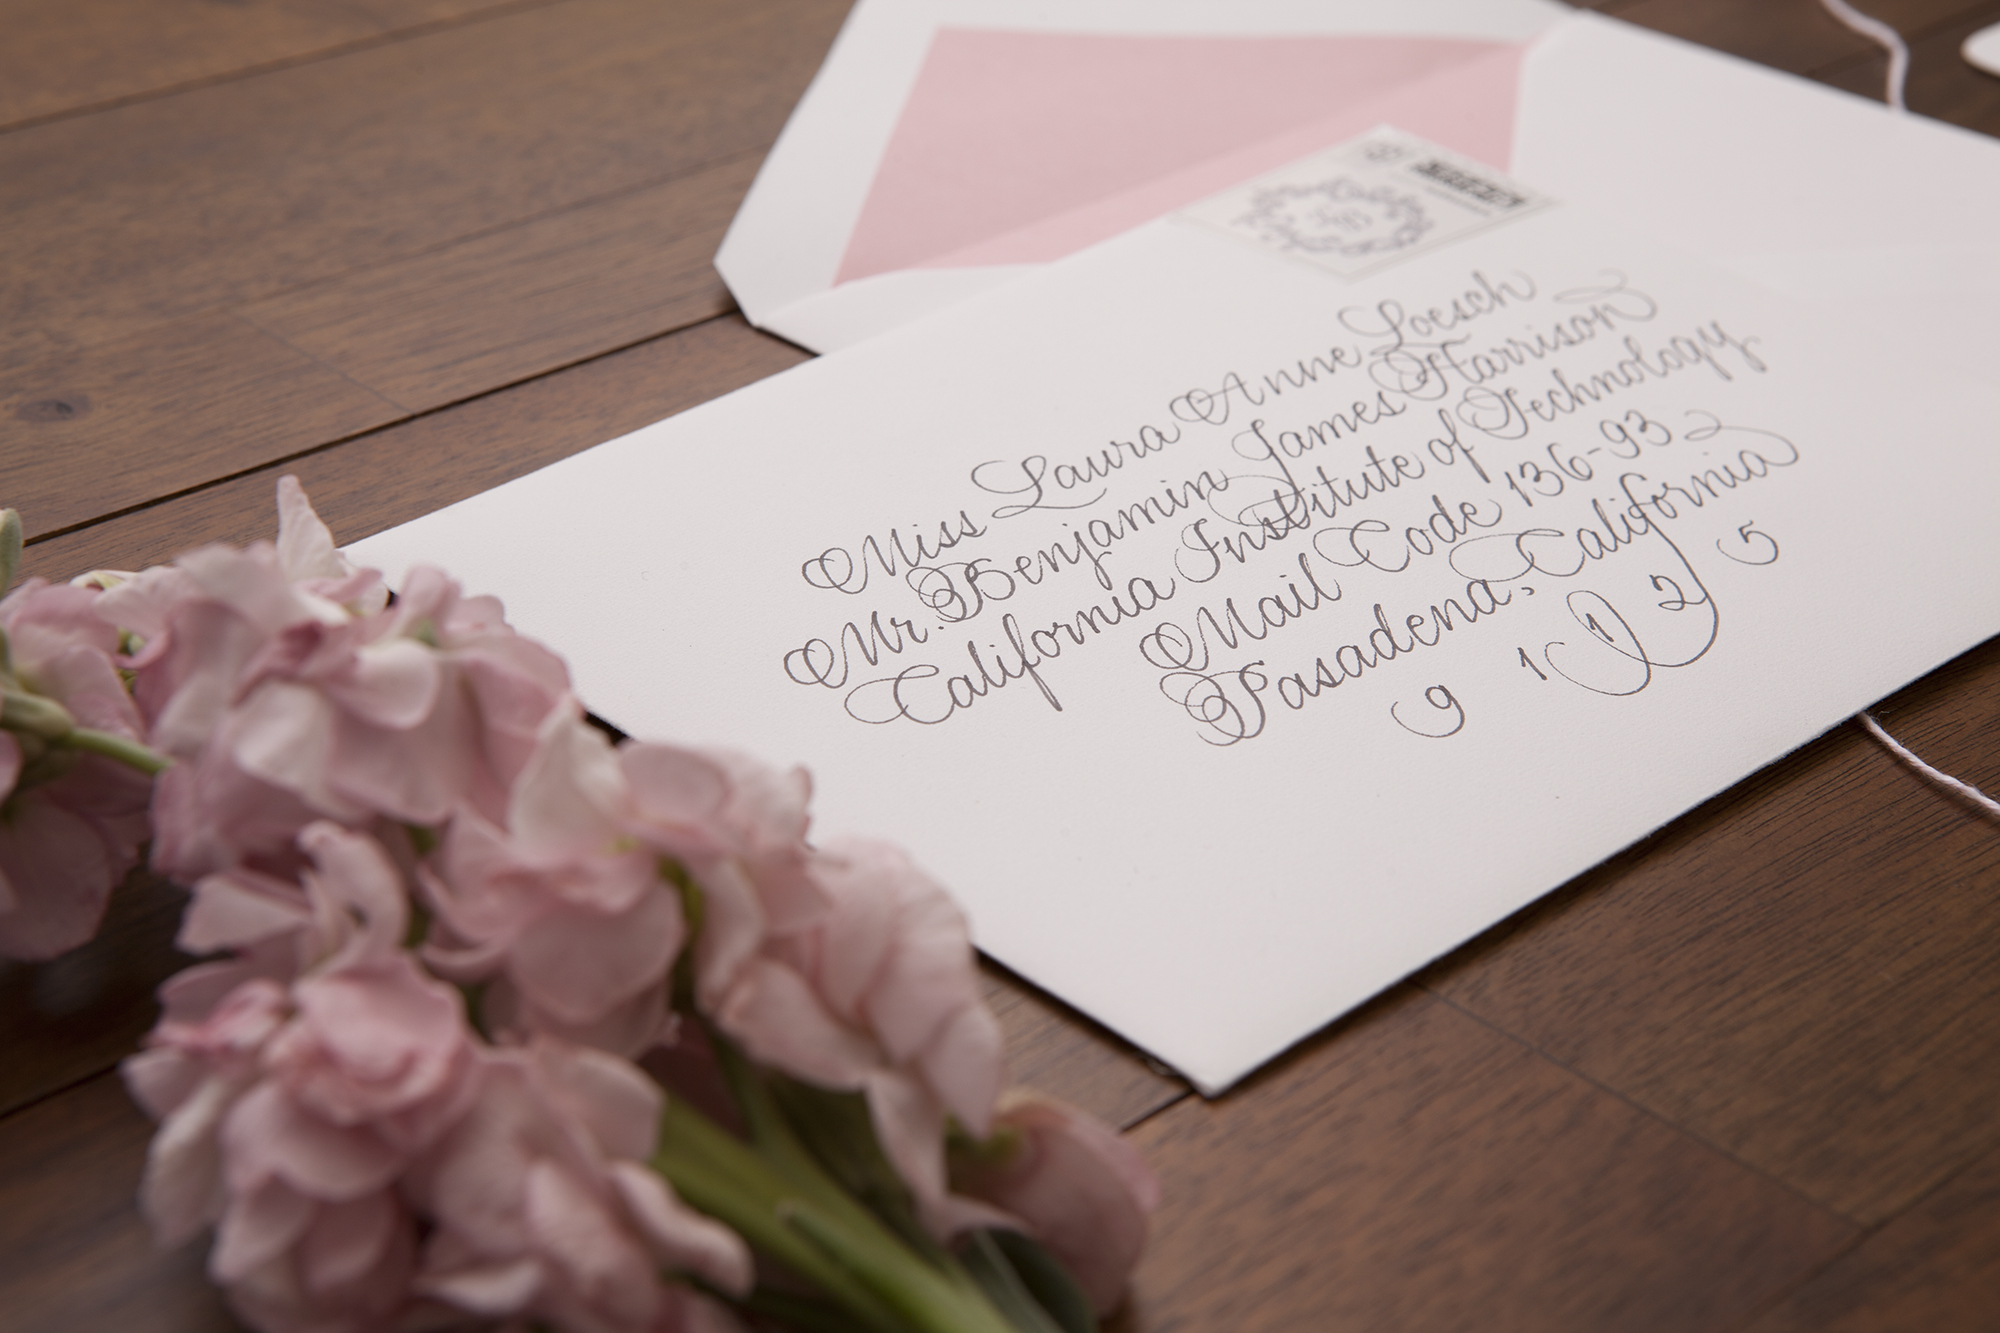 Miss Laura Anne Loesch
Mr. Benjamin James Harrison
California Institute of Technology
Mail Code 136-93
Pasadena, California
9 1 1 2 5